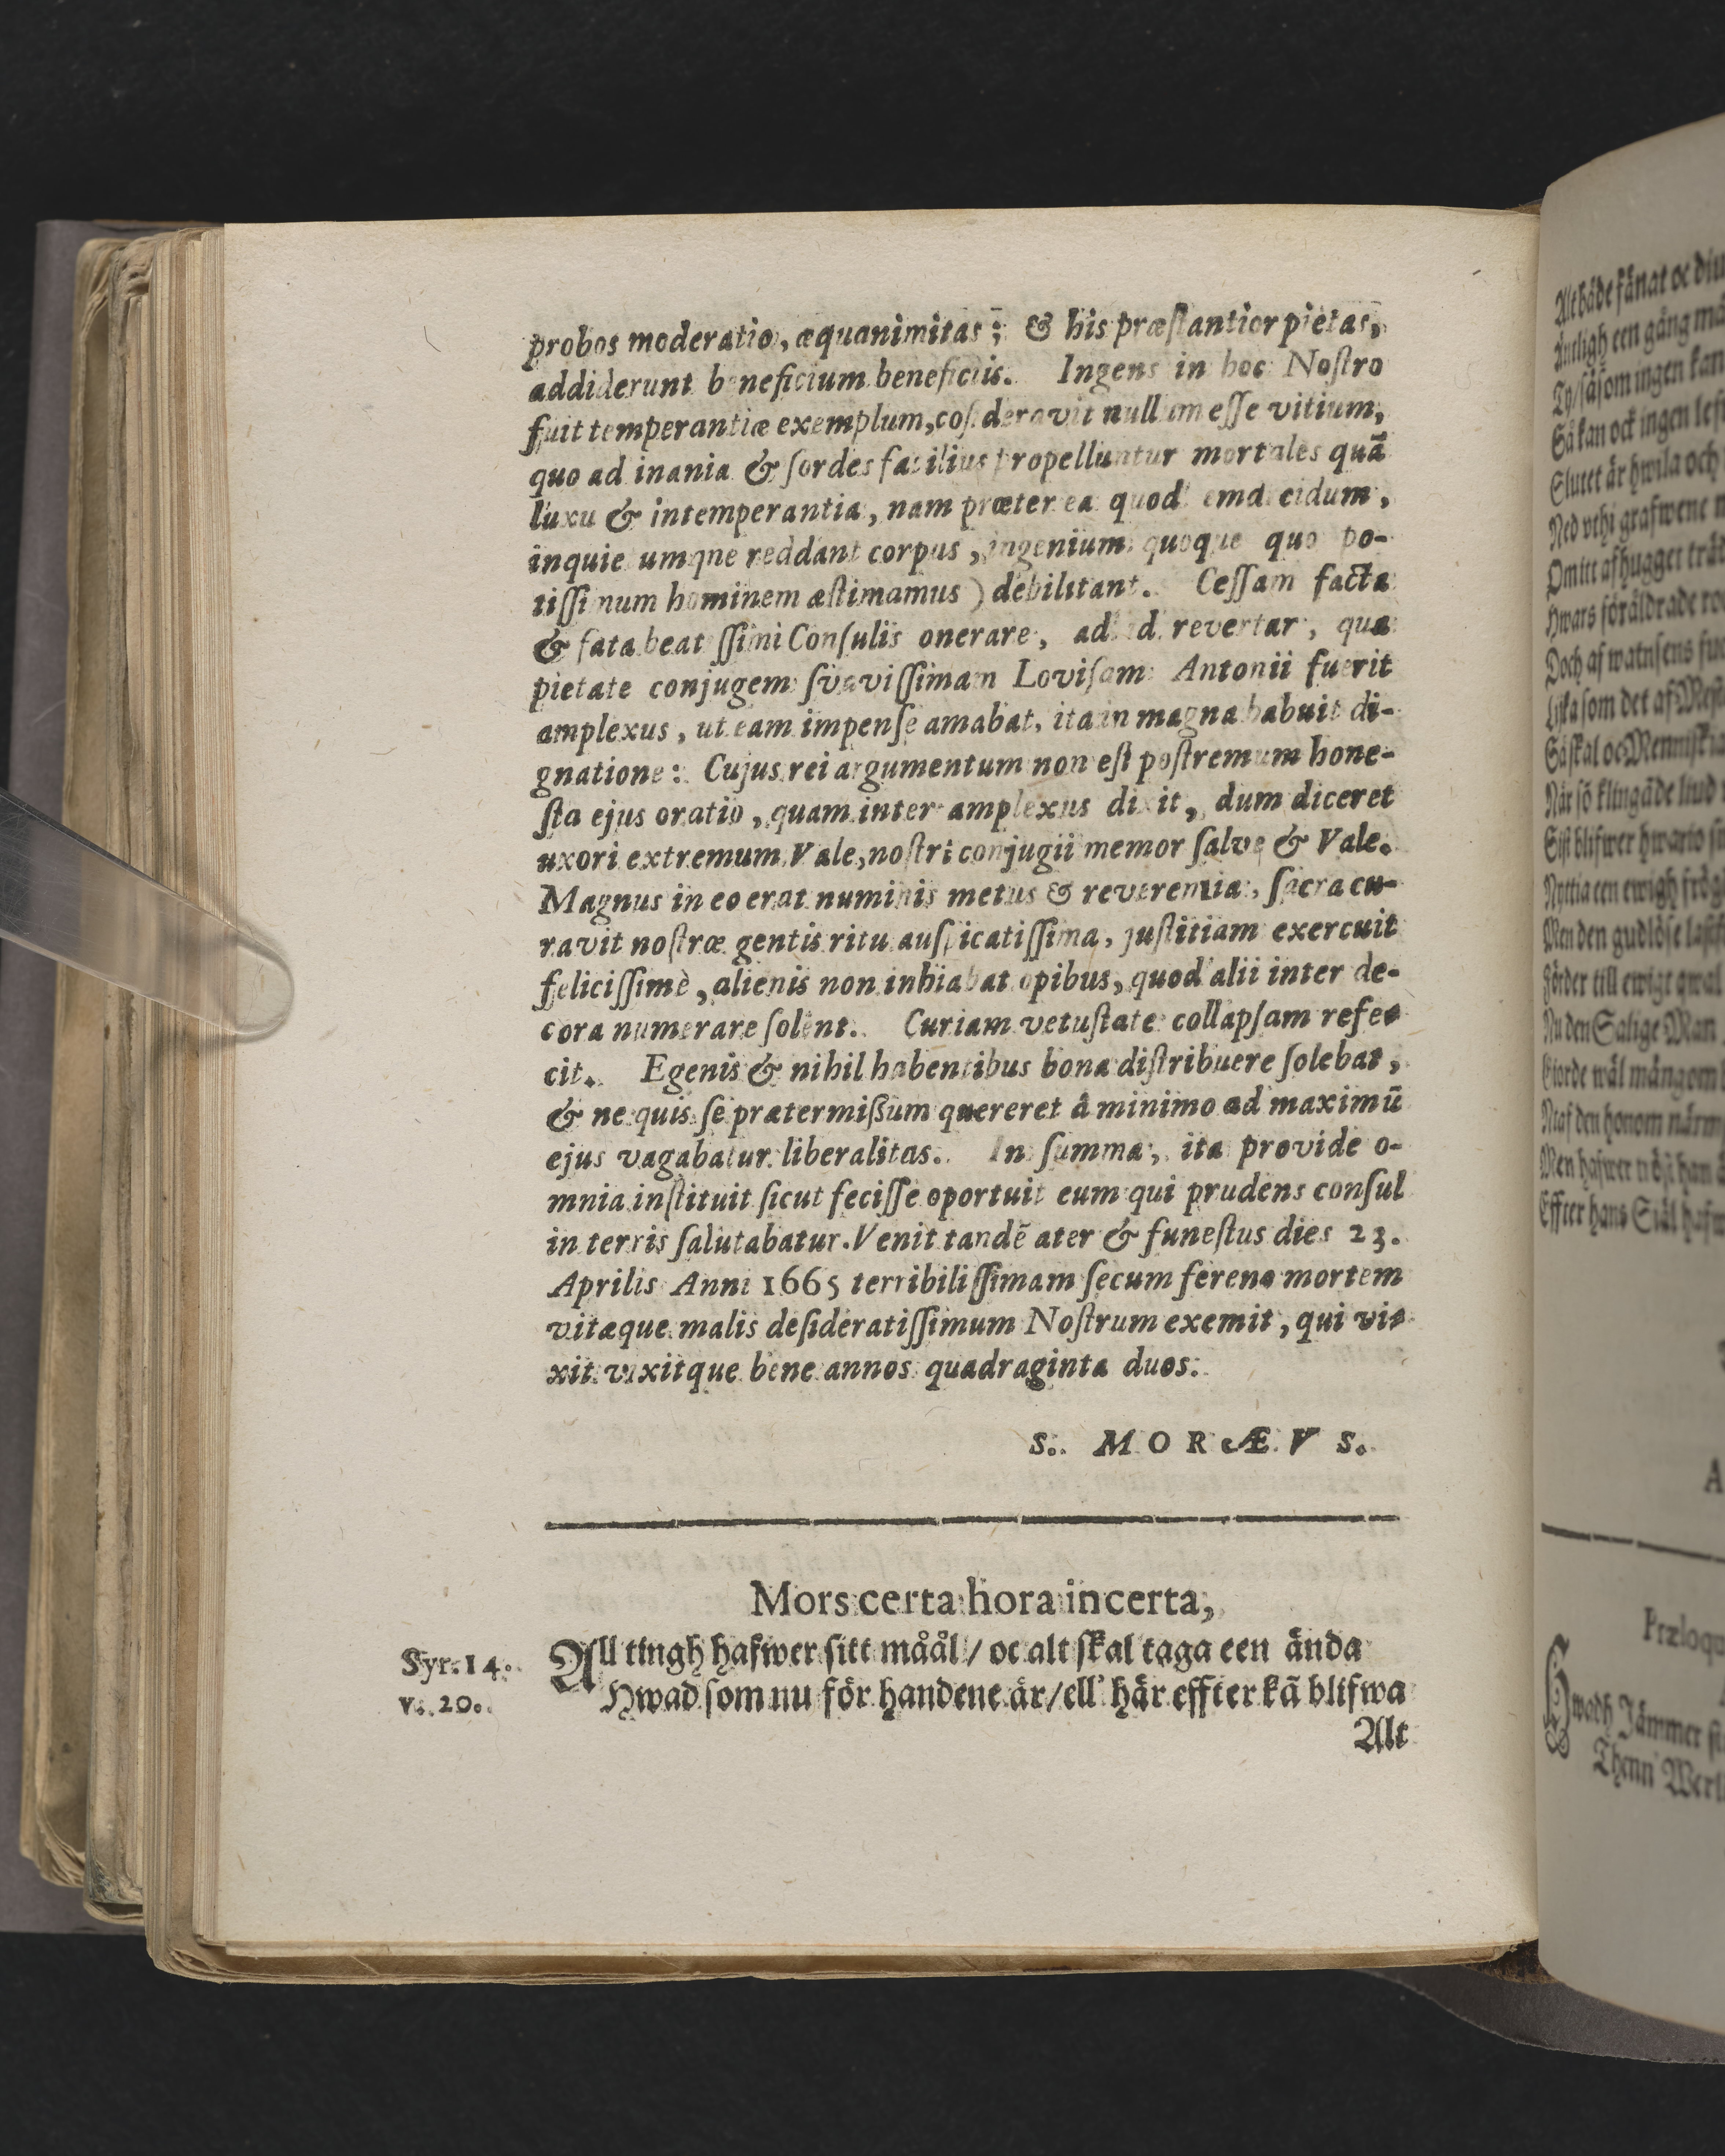 probos moderatio, æquanimitas; & his præſtantior pietas,
addiderunt beneficium beneficiis. Ingens in hoc Noſtro
fuit temperantiæ exemplum, cōſideravit nullum eſſe vitium,
quo ad inania & ſordes facilius propelluntur mortales quā
luxu & intemperantia, nam præter ea quod emacidum,
inquietumqne reddant corpus, ingenium quoque quo po-
tiſſimum hominem æſtimamus) debilitant. Ceſſam facta
& fata beatiſſimi Conſulis onerare, ad id revertar, qua
pietate conjugem ſvaviſſimam Loviſam Antonii fuerit
amplexus, ut eam impenſe amabat, ita in magna habuit di-
gnatione: Cujus rei argumentum non eſt poſtremum hone-
ſta ejus oratio, quam inter amplexus dixit, dum diceret
uxori extremum Vale, noſtri conjugii memor ſalve & Vale.
Magnus in eo erat numinis metus & reverentia, ſacra cu-
ravit noſtræ gentis ritu auſpicatiſſima, juſtitiam exercuit
feliciſſimè, alienis non inhiabat opibus, quod alii inter de-
cora numerare ſolent. Curiam vetuſtate collapſam refe-
cit. Egenis & nihil habentibus bona diſtribuere ſolebat,
& ne quis ſe prætermißum quereret â minimo ad maximū
ejus vagabatur liberalitas. In ſumma, ita provide o-
mnia inſtituit ſicut feciſſe oportuit eum qui prudens conſul
in terris ſalutabatur. Venit tandē ater & funeſtus dies 23.
Aprilis Anni 1665 terribiliſſimam ſecum ferens mortem
vitæque malis deſideratiſſimum Noſtrum exemit, qui vi-
xit vixitque bene annos quadraginta duos.
S. MORÆVS.
Mors certa hora incerta,
Syr. 14. All tingh hafwer ſitt måål/ oc alt ſkal taga een ända
v. 20. Hwad ſom nu för handene är/ ell' här effter kā blifwa
Alt
Altbåde fånat oc
een gång
Ty/ såſom ingen kan
Så kan ock ingen
Slutet är hwila och
Ned vthi grafwene
Omitt afhugget
Hwars föräldrade
Doch af watnſens
Lijka ſom det af
Så ſkal oc
När ſö klingāde liud
Siſt blifwer hwario
Nyttia een ewigh
Men den gudlöſe
Förder till ewigt qwal
Nu den Salige Man
Giorde wäl mångom
den honom närm
Men hafwer han
Effter hans Siäl
A
Præloqu
Hwadh Jämmer
Thenn Werl